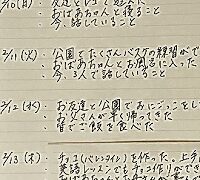 2/10(月) 友達とレゴで遊んだ
おばあちゃんと寝ること
今話していること
2/11(火) 公園とたくさんバスケの練習がで
おばあちゃんとお風呂に入った
今、3人で話していること
2/12(水) お友達と公園でおにごっこをし
お父さんが早く帰ってきた
皆でご飯を食べた
2/13(木) チョコ(バレンタイン)を作った。上手
英語レッスンでもチョコ作りができ